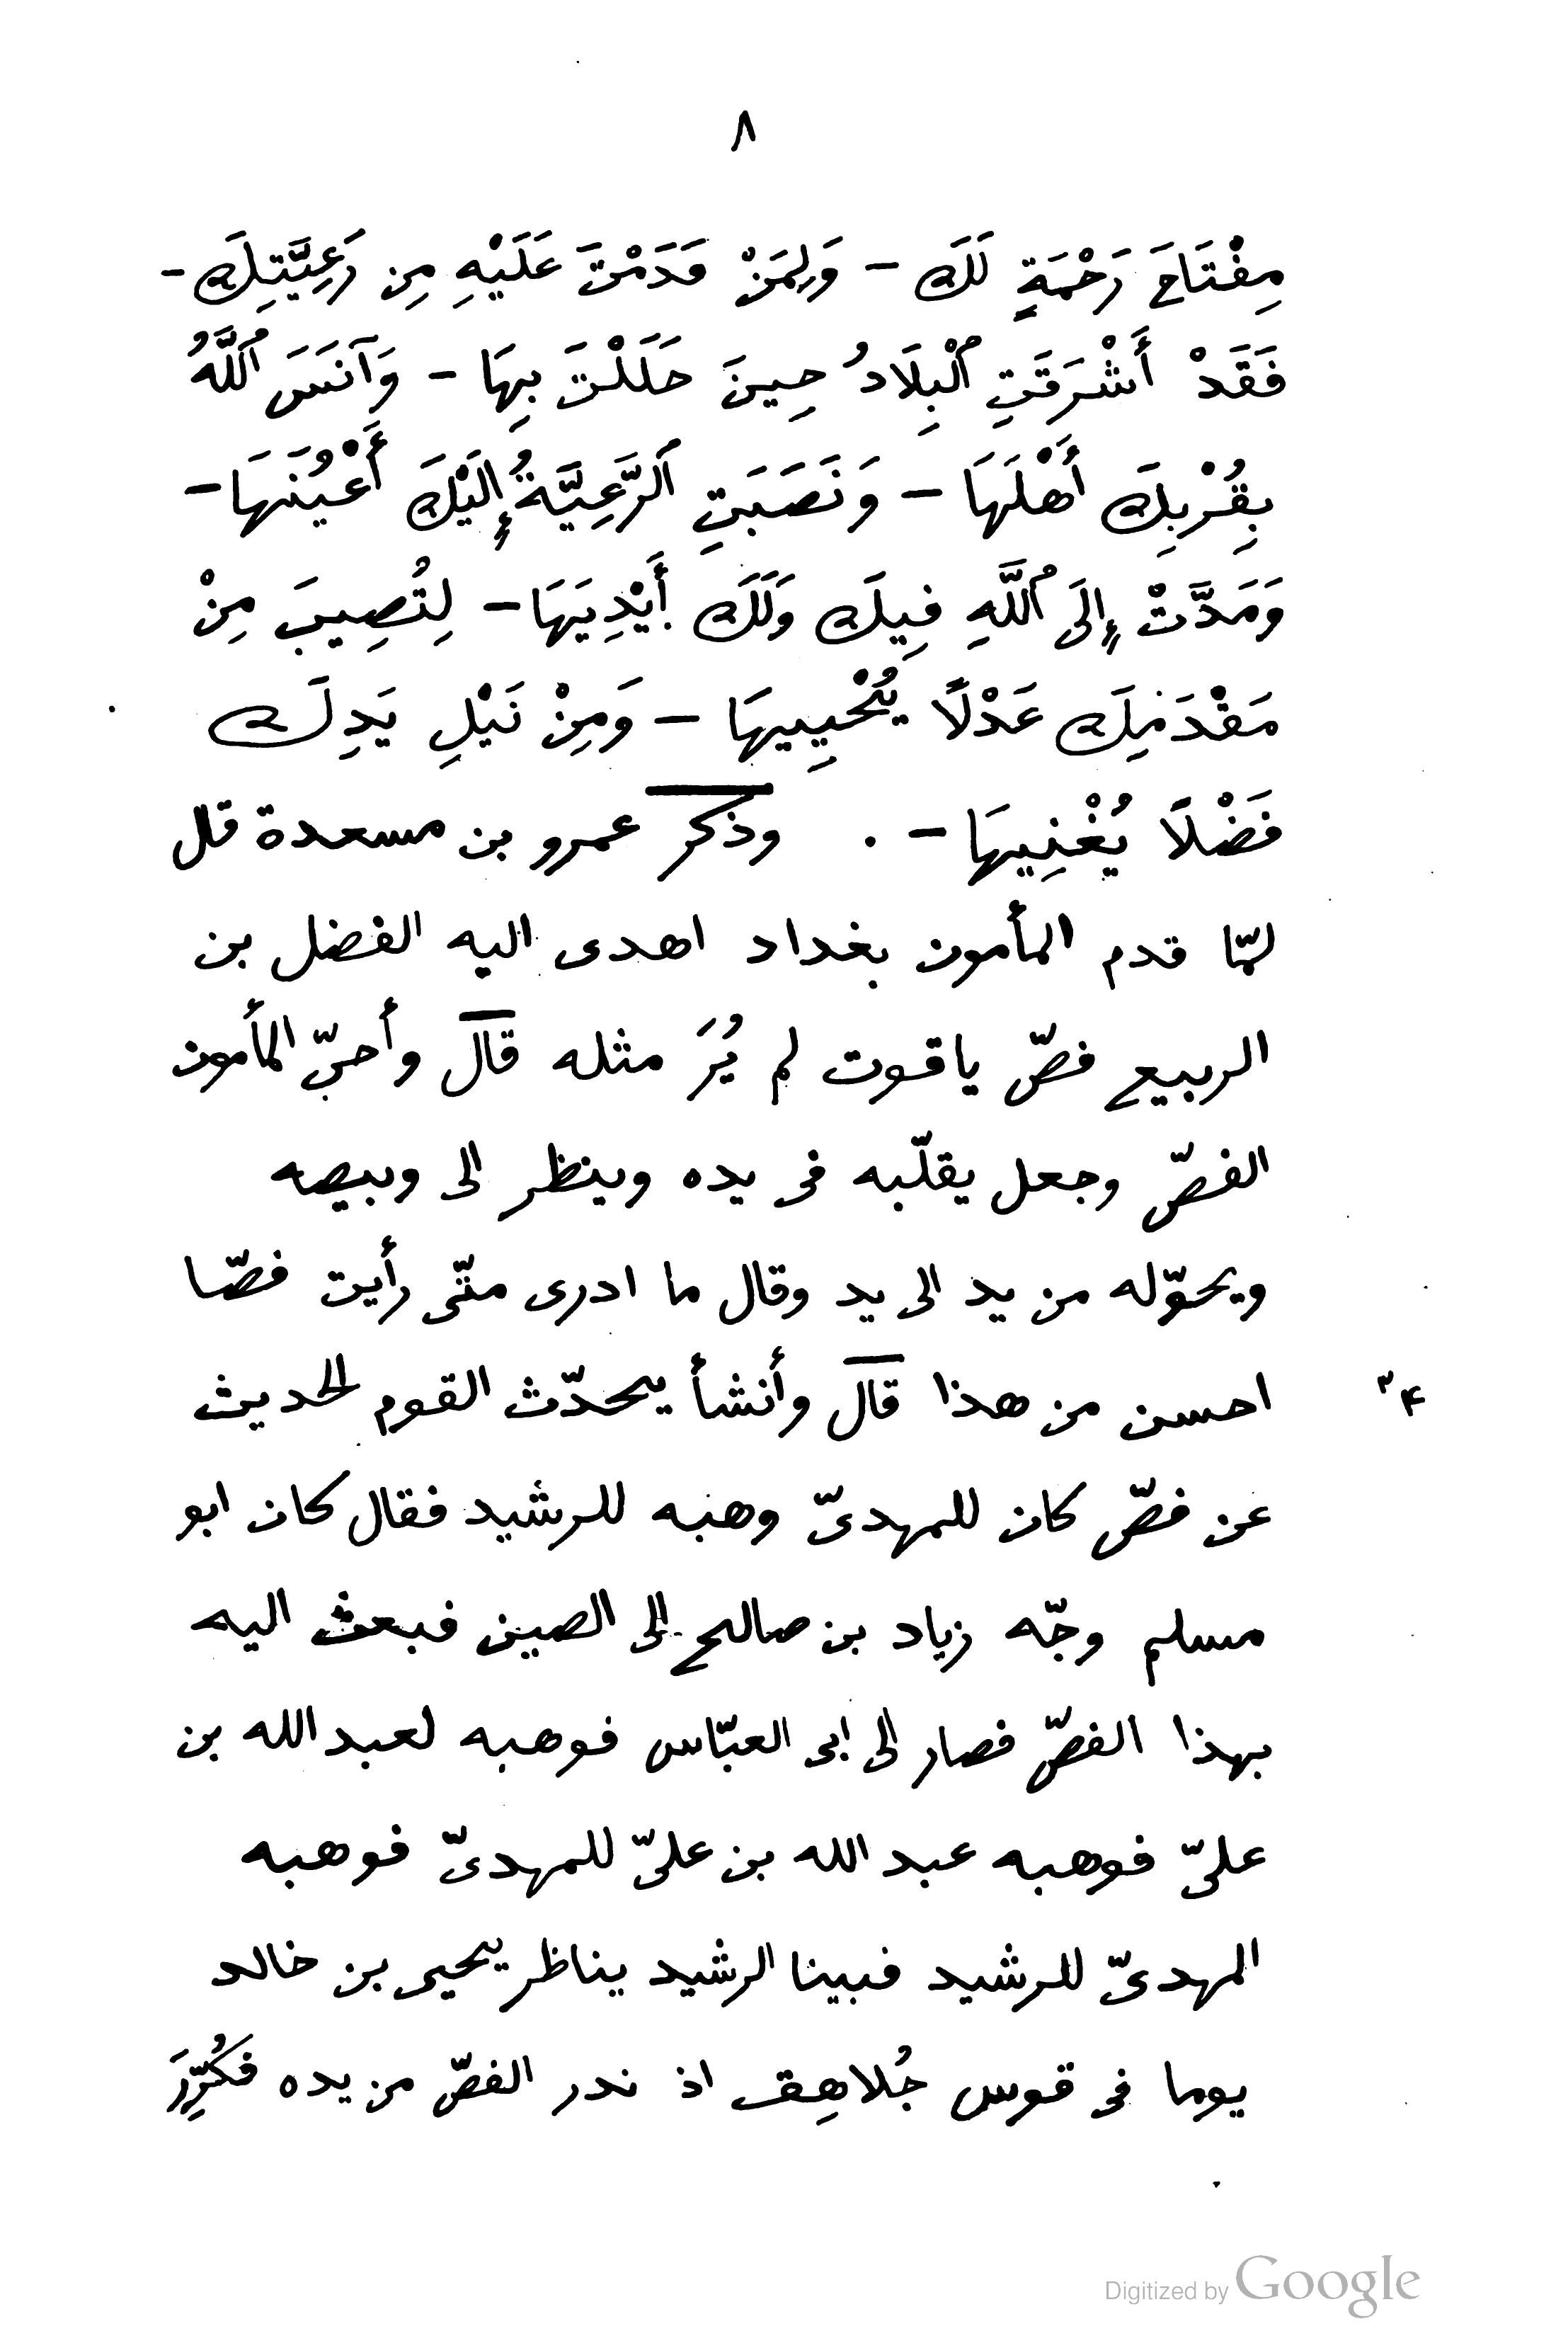 ٨
مِفْتَاحَ رَحْمَةٍ لَكَ - وَلِمَنْ قَدَمْتَ عَلَيْهِ مِن رَعِيَّتِكَ -
فَقَدْ أَشْرَقَتِ ٱلْبِلَادُ حِينَ حَلَلْتَ بِهَا - وَآنَسَ ٱللَّهُ
بِقُرْبِكَ أَهْلَهَا - وَنَصَبَتِ ٱلرَّعِيَّةُ إِلَيْكَ أَعْيُنَهَا -
وَمَدَّتْ إِلَى ٱللَّهِ فِيكَ وَلَكَ أَيْدِيَهَا - لِتُصِيبَ مِنْ
مَقْدَمِكَ عَدْلًا يُحْيِيهَا - وَمِنْ نَيْلِ يَدِكَ
فَضْلًا يُغْنِيهَا - . وذكر عمرو بن مسعدة قال
لمّا قدم المأمون بغداد اهدى اليه الفضل بن
الربيع فصّ ياقوت لم يُرَ مثله قال وأحبّ المأمون
الفصّ وجعل يقلّبه فى يده وينظر الى وبيصه
ويحوّله من يد الى يد وقال ما ادرى متّى رأيت فصّا
احسن من هذا قال وأنشأ يحدّث القوم الحديث
٣۴
عن فصّ كان للمهدىّ وهبه للرشيد فقال كان ابو
مسلم وجّه زياد بن صالح الى الصين فبعث اليه
بهذا الفصّ فصار الى ابى العبّاس فوهبه لعبد الله بن
علىّ فوهبه عبد الله بن علىّ للمهدىّ فوهبه
المهدىّ للرشيد فبينا الرشيد يناظر يحيى بن خالد
يوما فى قوس جُلاهِق اذ ندر الفصّ من يده فكُرِّرَ
Digitized by Google